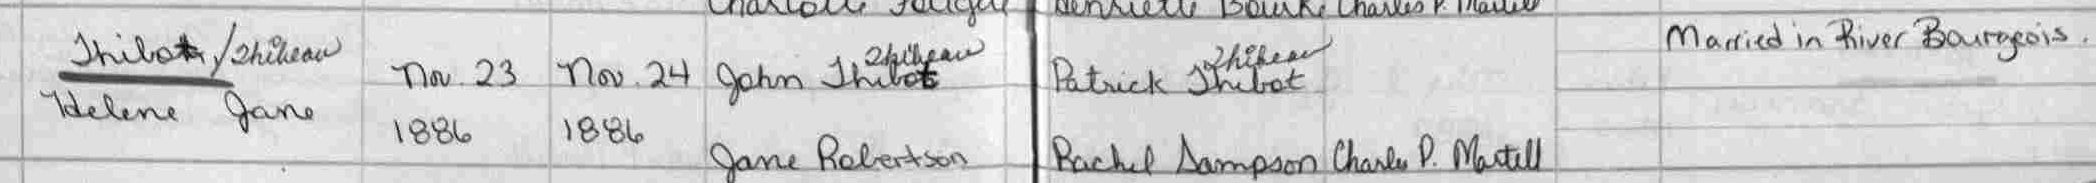 Charlotte Henriette Bourke Charles P. Martell
Thibot/Thibeau Nov. 23 Nov. 24 John Thibot Thibeau Patrick Thibot Thibeau Married in River Bourgeois.
Helene Jane 1886 1886
Jane Robertson Rachel Sampson Charles P. Martell